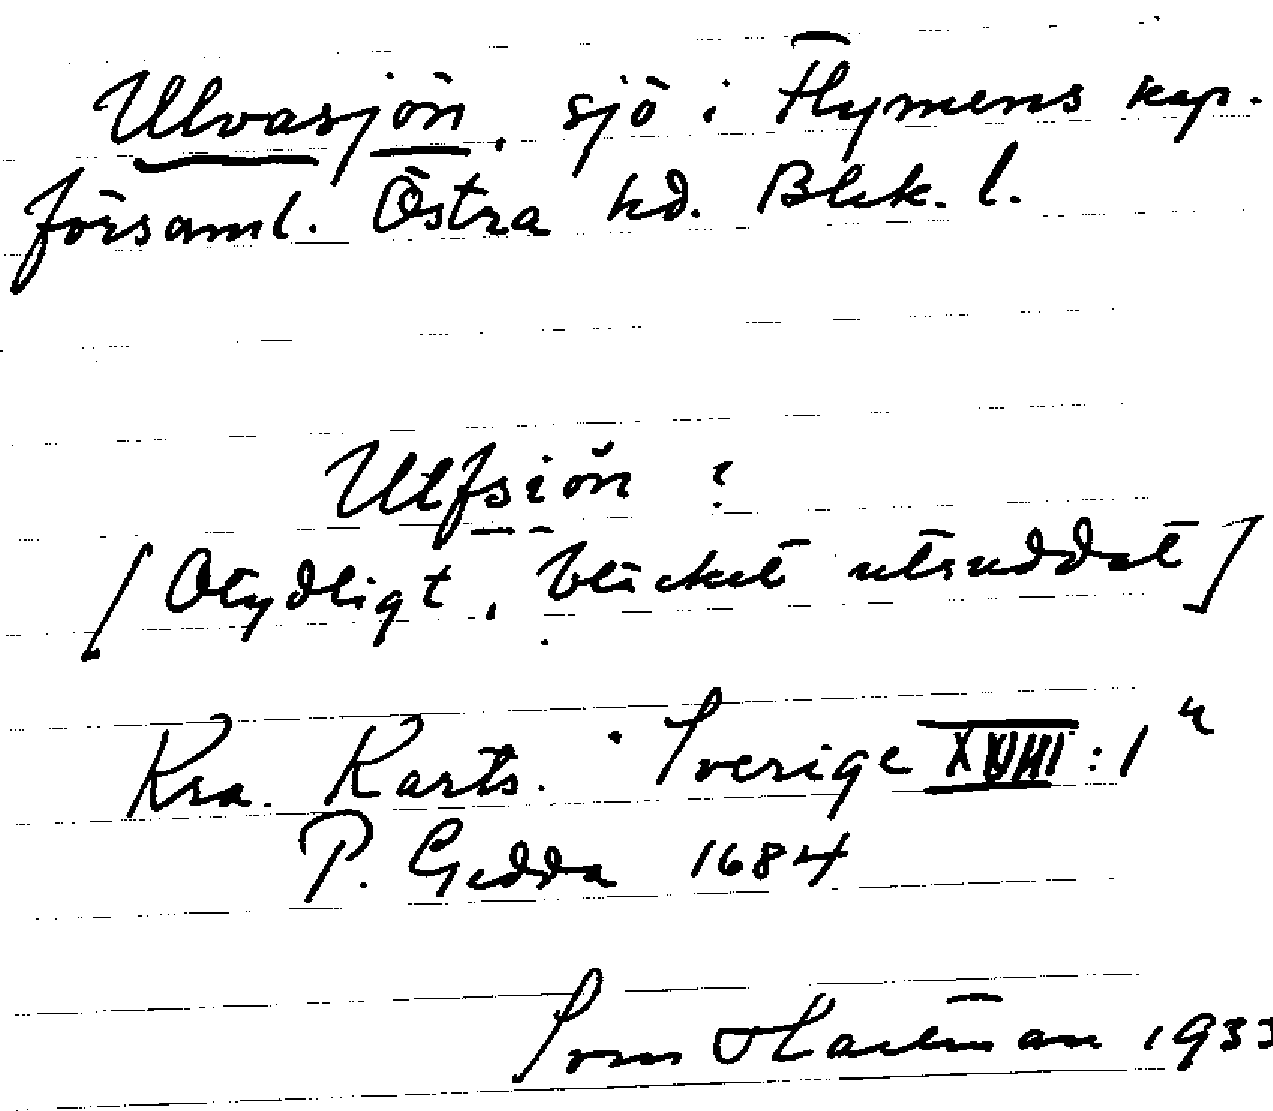 Ulvasjön, sjö i Flymens kap.
församl. Östra hd. Blek. l.
Ulfsiön ?
[Otydligt, bläcket utsuddat]
Kra. Karts. Sverige XVIII:1
P. Gedda 1684
Sven Hartman 1933